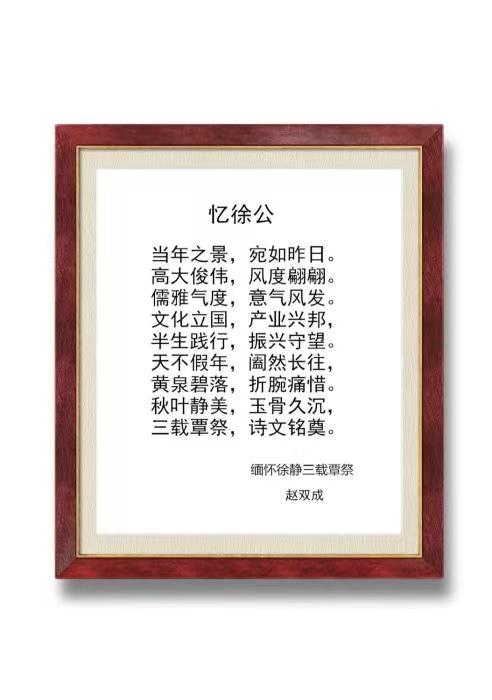 忆徐公
当年之景，宛如昨日。
高大俊伟，风度翩翩。
儒雅气度，意气风发。
文化立国，产业兴邦，
半生践行，振兴守望。
天不假年，阖然长往，
黄泉碧落，折腕痛惜。
秋叶静美，玉骨久沉，
三载覃祭，诗文铭奠。
缅怀徐静三载覃祭
赵双成